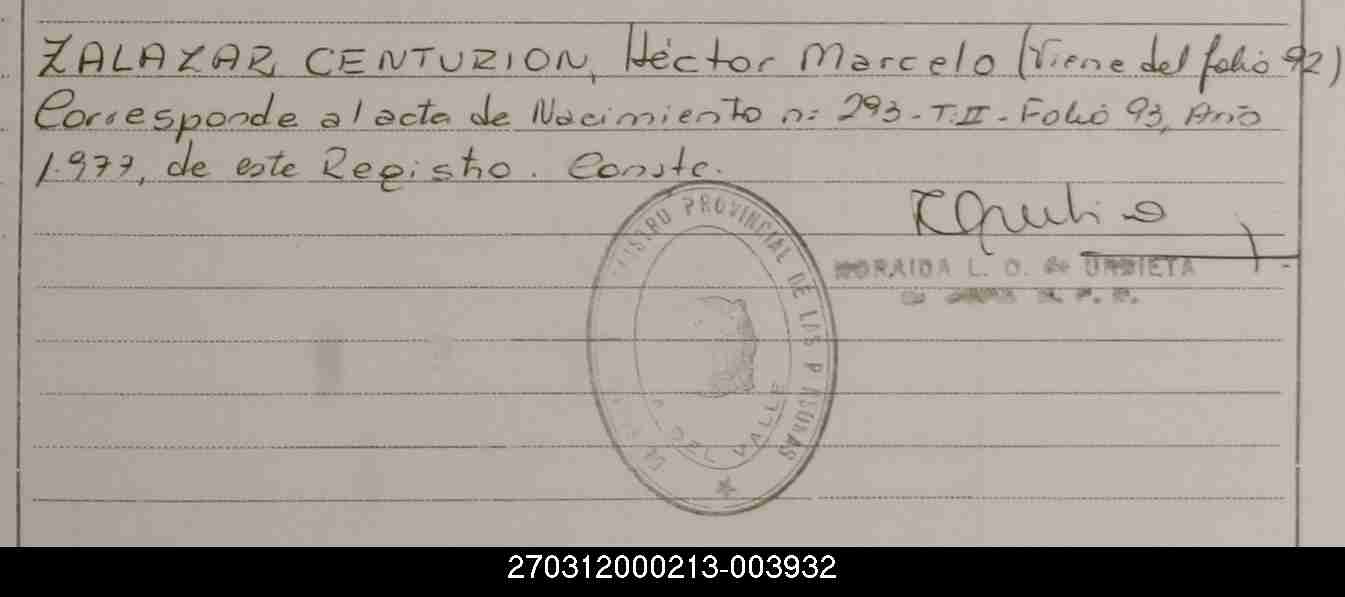 ZALAZAR CENTURION, Héctor Marcelo (Viene del folio 92)
Corresponde al acta de Nacimiento n= 293-T:II-Folio 93, Año
1.977, de este Registro. Conste.
PROVINCIAL DE LAS
DEL VALLE
L. O. de URDIETA
270312000213-003932